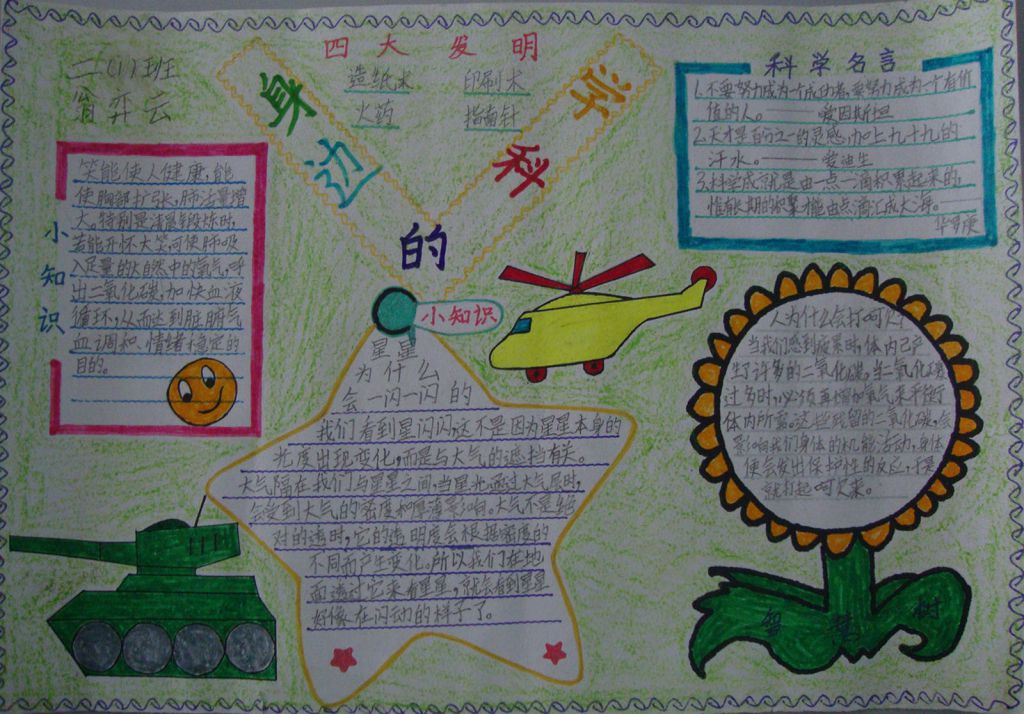 二(1)班
四大发明
造纸术 印刷术
火药 指南针
身边的科学
科学名言
1.不要努力成为一个成功者,要努力成为一个有价
值的人。——爱因斯坦
2.天才是百分之一的灵感,加上九十九的
汗水。——爱迪生
3.科学成就是由一点一滴积累起来的,
惟有长期的积聚才能由点滴汇成大海。
华罗庚
小知识
笑能使人健康,能
使胸部扩张,肺活量增
大。特别是清晨锻炼时,
若能开怀大笑,可使肺吸
入足量的大自然中的氧气,呼
出二氧化碳,加快血液
循环,从而达到脏腑气
血调和、情绪稳定的
目的。
小知识
星星
为什么
会一闪一闪的
我们看到星闪闪,这不是因为星星本身的
光度出现变化,而是与大气的遮挡有关。
大气隔在我们与星星之间,当星光通过大气层时,
会受到大气的密度和厚薄影响。大气不是绝
对的透明,它的透明度会根据密度的
不同而产生变化。所以我们在地
面透过它来看星星,就会看到星星
好像在闪动的样子了。
人为什么会打呵欠?
当我们感到疲累时,体内已产
生了许多的二氧化碳。当二氧化碳
过多时,必须再增加氧气来平衡
体内所需。这些残留的二氧化碳,会
影响我们身体的机能活动,身体
便会发出保护性的反应,于是
就打起呵欠来。
智慧树